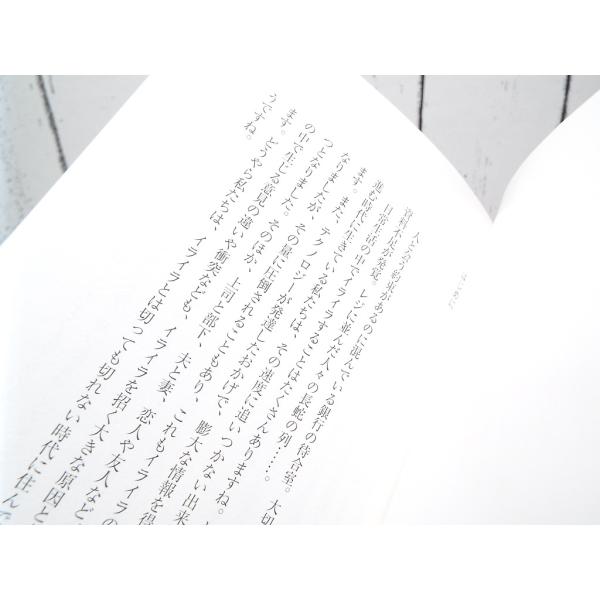 はじめに
人と会う約束があるのに混んでいる銀行の待合室。 大切
資料不足が発覚。 レジに並んだ人々の長蛇の列……。
日常生活の中でイライラすることはたくさんありますね。
進む時代に生きている私たちは、その速度に追いつかない出来
ます。また、テクノロジーが発達したおかげで、膨大な情報を得
なりましたが、その量に圧倒されることもあり、これもイライラの
つとなりました。そのほか、上司と部下、夫と妻、恋人や友人など
の中で生じる意見の違いや衝突なども、イライラを招く大きな原因と
ます。どうやら私たちは、イライラとは切っても切れない時代に住んで
うですね。